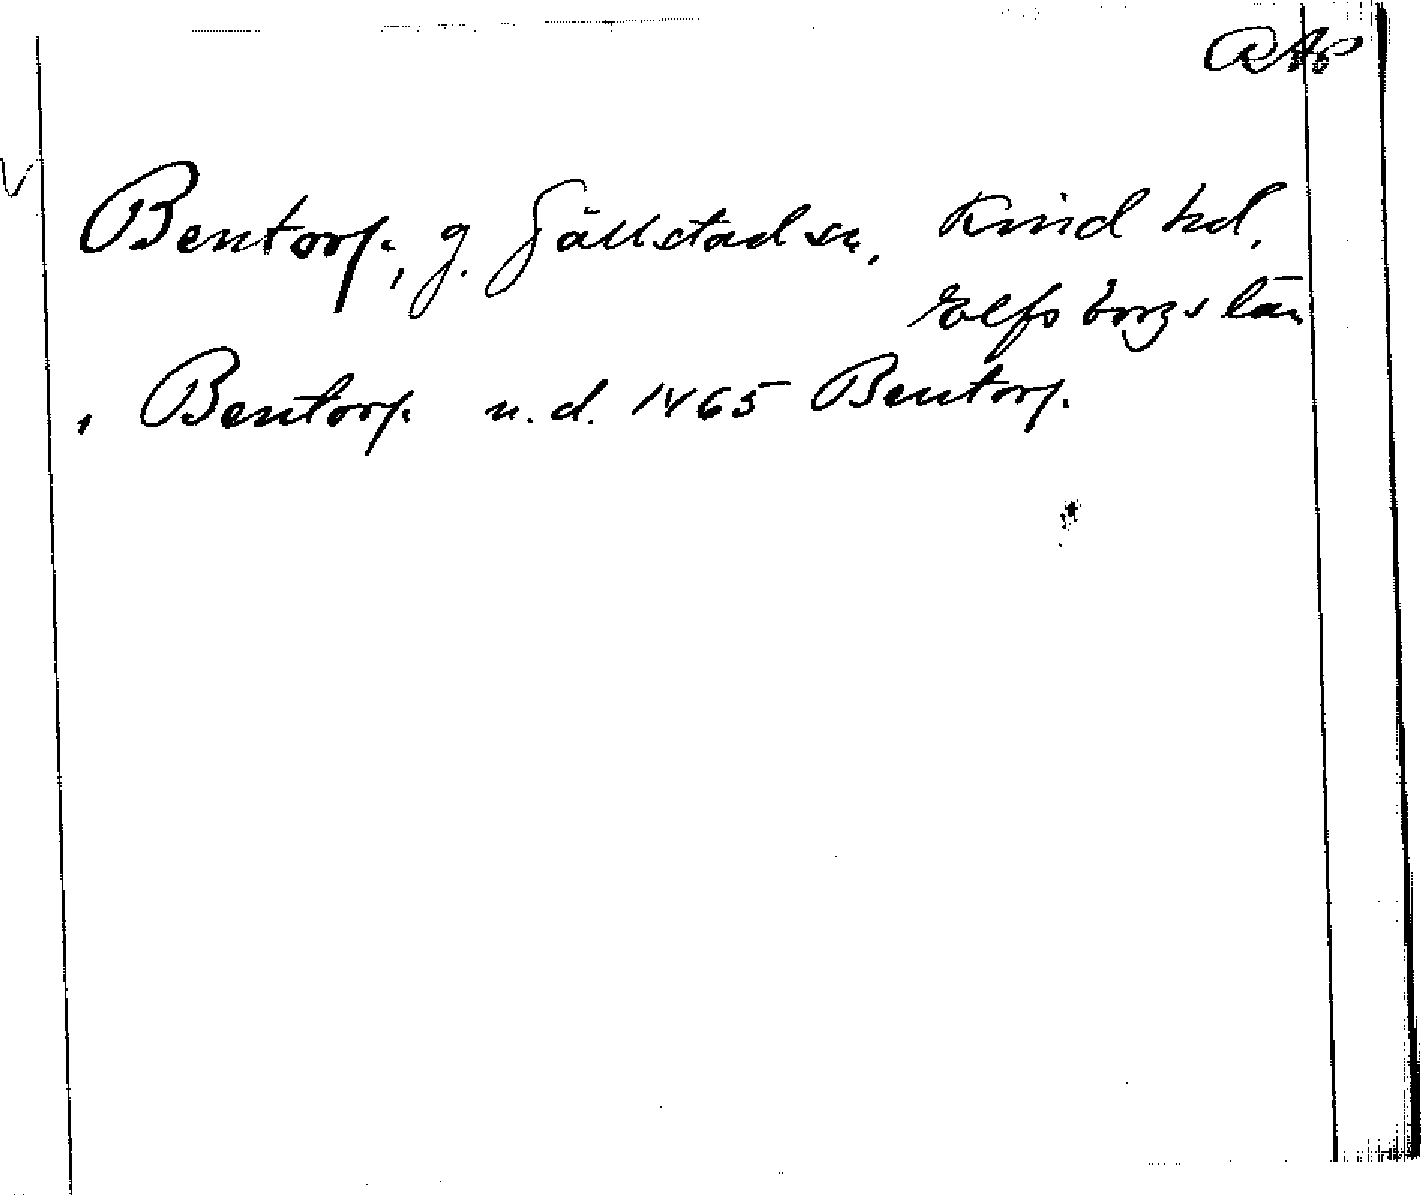 RAp
Bentorp, g. Gällstad sn, Kind hd,
Elfsborgs län
, Bentorp n. d. 1465 Bentorp.